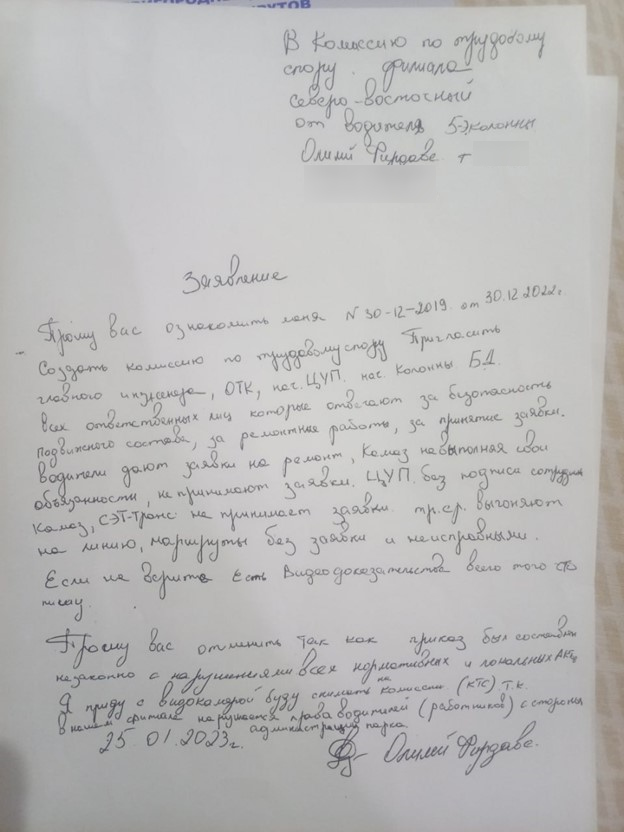 РУТОВ
В Комиссию по трудовому
спору. филиала
северо-восточный
от водителя 5-Эколонны
Олимй Фирдавс. т
Заявление
Прошу вас ознакомить меня N 30-12-2019. от 30.12.2022г.
Создать комиссию по трудовому спору Пригласить
главного инженера, ОТК, нач. ЦУП. нач. Колонны БД.
всех ответственных лиц которые отвечают за безопасность
подвижного состава, за ремонтные работы, за принятие заявки.
водители дают заявки на ремонт, Камаз не выполняя свои
объязанности, не принимают заявки. ЦУП. без подписа
Камаз, СЭТ-Транс не принимает заявки. тр.ср. выгоняют
на линию, маршруты без заявки и неисправными.
Если не верите есть Видеодоказательства всего того что
пишу.
Прошу вас отменить так как приказ был составлен
незаконно с нарушениями всех нормативных и
Я приду с видокамерой буду снимать на комиссии (КТС) т.к.
в нашем нарушается права водителей (работников) с стороны
администрации парка.
25 01.2023г.
Олимй Фирдавс.